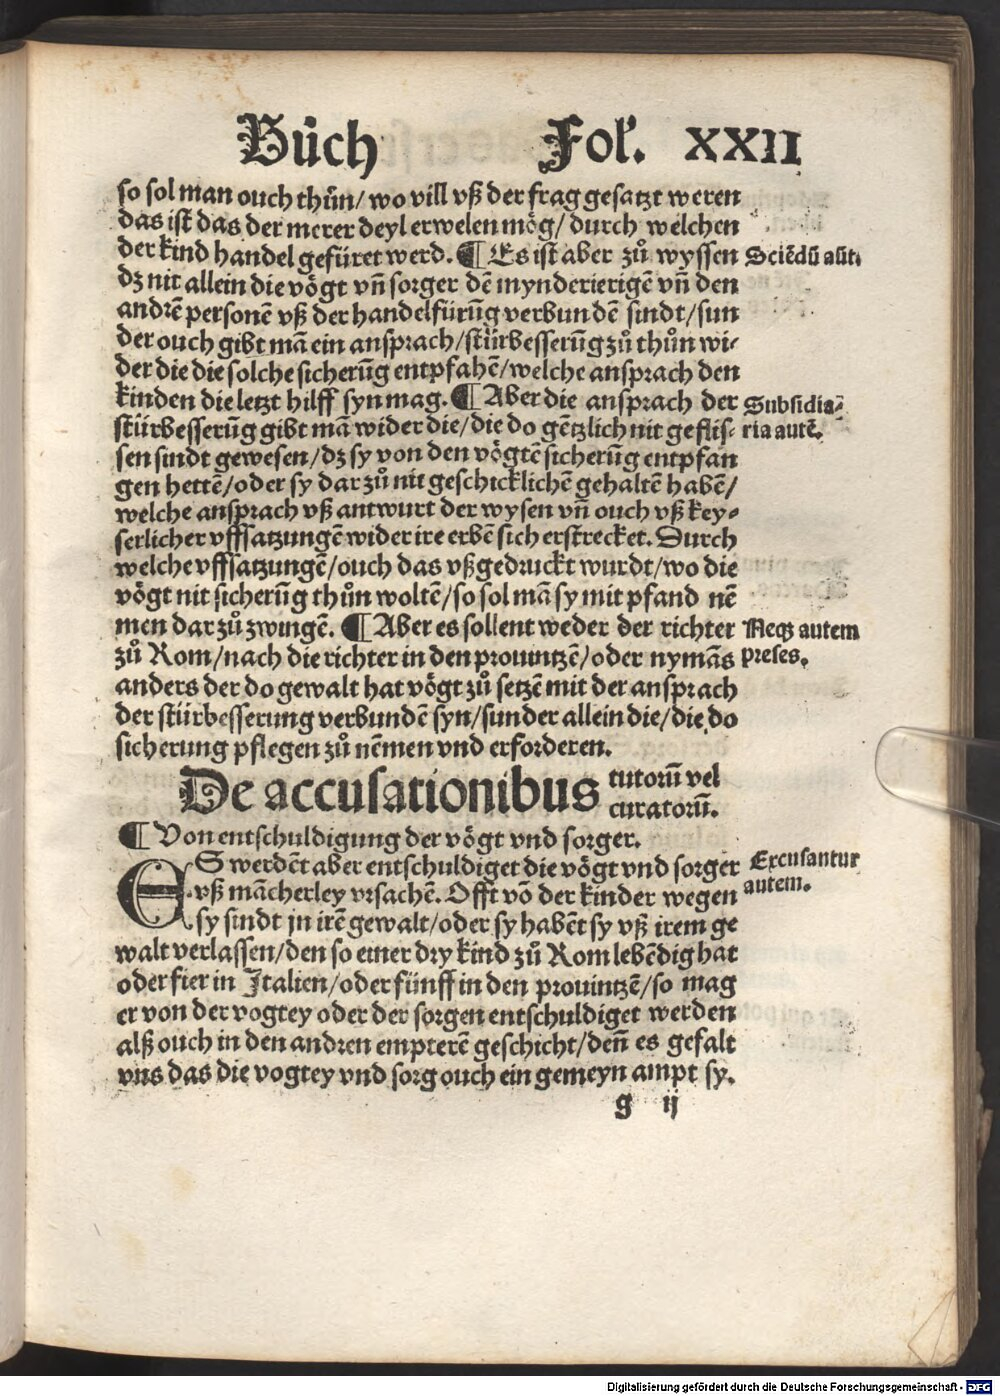 Bůch Fol'. XXII
so sol man ouch thůn/ wo vill vß der frag gesatzt weren
das ist das der merer deyl erwelen mög/ durch welchen
der kind handel gefüret werd. ¶ Es ist aber zů wyssen
Sciēdū aūt.
dz nit allein die vögt vñ sorger dē mynderierigē vñ den
andrē personē vß der handelfürūg verbundē sindt/sun
der ouch gibt mā ein ansprach/stürbesserūg zů thůn wi⸗
der die die solche sicherūg entpfahē/welche ansprach den
kinden die letzt hilff syn mag. ¶ Aber die ansprach der
Subsidia⸗
stürbesserūg gibt mā wider die/die do gētzlich nit geflis⸗
ria autē.
sen sindt gewesen/dz sy von den vögtē sicherūg entpfan
gen hettē/oder sy dar zů nit geschicklichē gehaltē habē/
welche ansprach vß antwurt der wysen vñ ouch vß key⸗
serlicher vffsatzungē wider ire erbē sich erstrecket. Durch
welche vffsatzungē/ouch das vßgedruckt wurdt/wo die
vögt nit sicherūg thůn woltē/so sol mā sy mit pfand nē
men dar zů zwingē. ¶ Aber es sollent weder der richter
Neqꝫ autem
zů Rom/nach die richter in den prouintzē/oder nymās
preses.
anders der do gewalt hat vögt zů setzē mit der ansprach
der stürbesserung verbundē syn/sunder allein die/die do
sicherung pflegen zů nēmen vnd erforderen.
De accusationibus tutorū vel
curatorū.
¶ Von entschuldigung der vögt vnd sorger.
ES werdēt aber entschuldiget die vögt vnd sorger
Excusantur
vß mācherley vrsachē. Offt vō der kinder wegen
autem.
sy sindt jn irē gewalt/oder sy habēt sy vß irem ge
walt verlassen/den so einer dry kind zů Rom lebēdig hat
oder fier in Italien/oder fünff in den prouintzē/so mag
er von der vogtey oder der sorgen entschuldiget werden
alß ouch in den andren empterē geschicht/deñ es gefalt
vns das die vogtey vnd sorg ouch ein gemeyn ampt sy.
g ij
Digitalisierung gefördert durch die Deutsche Forschungsgemeinschaft - DFG